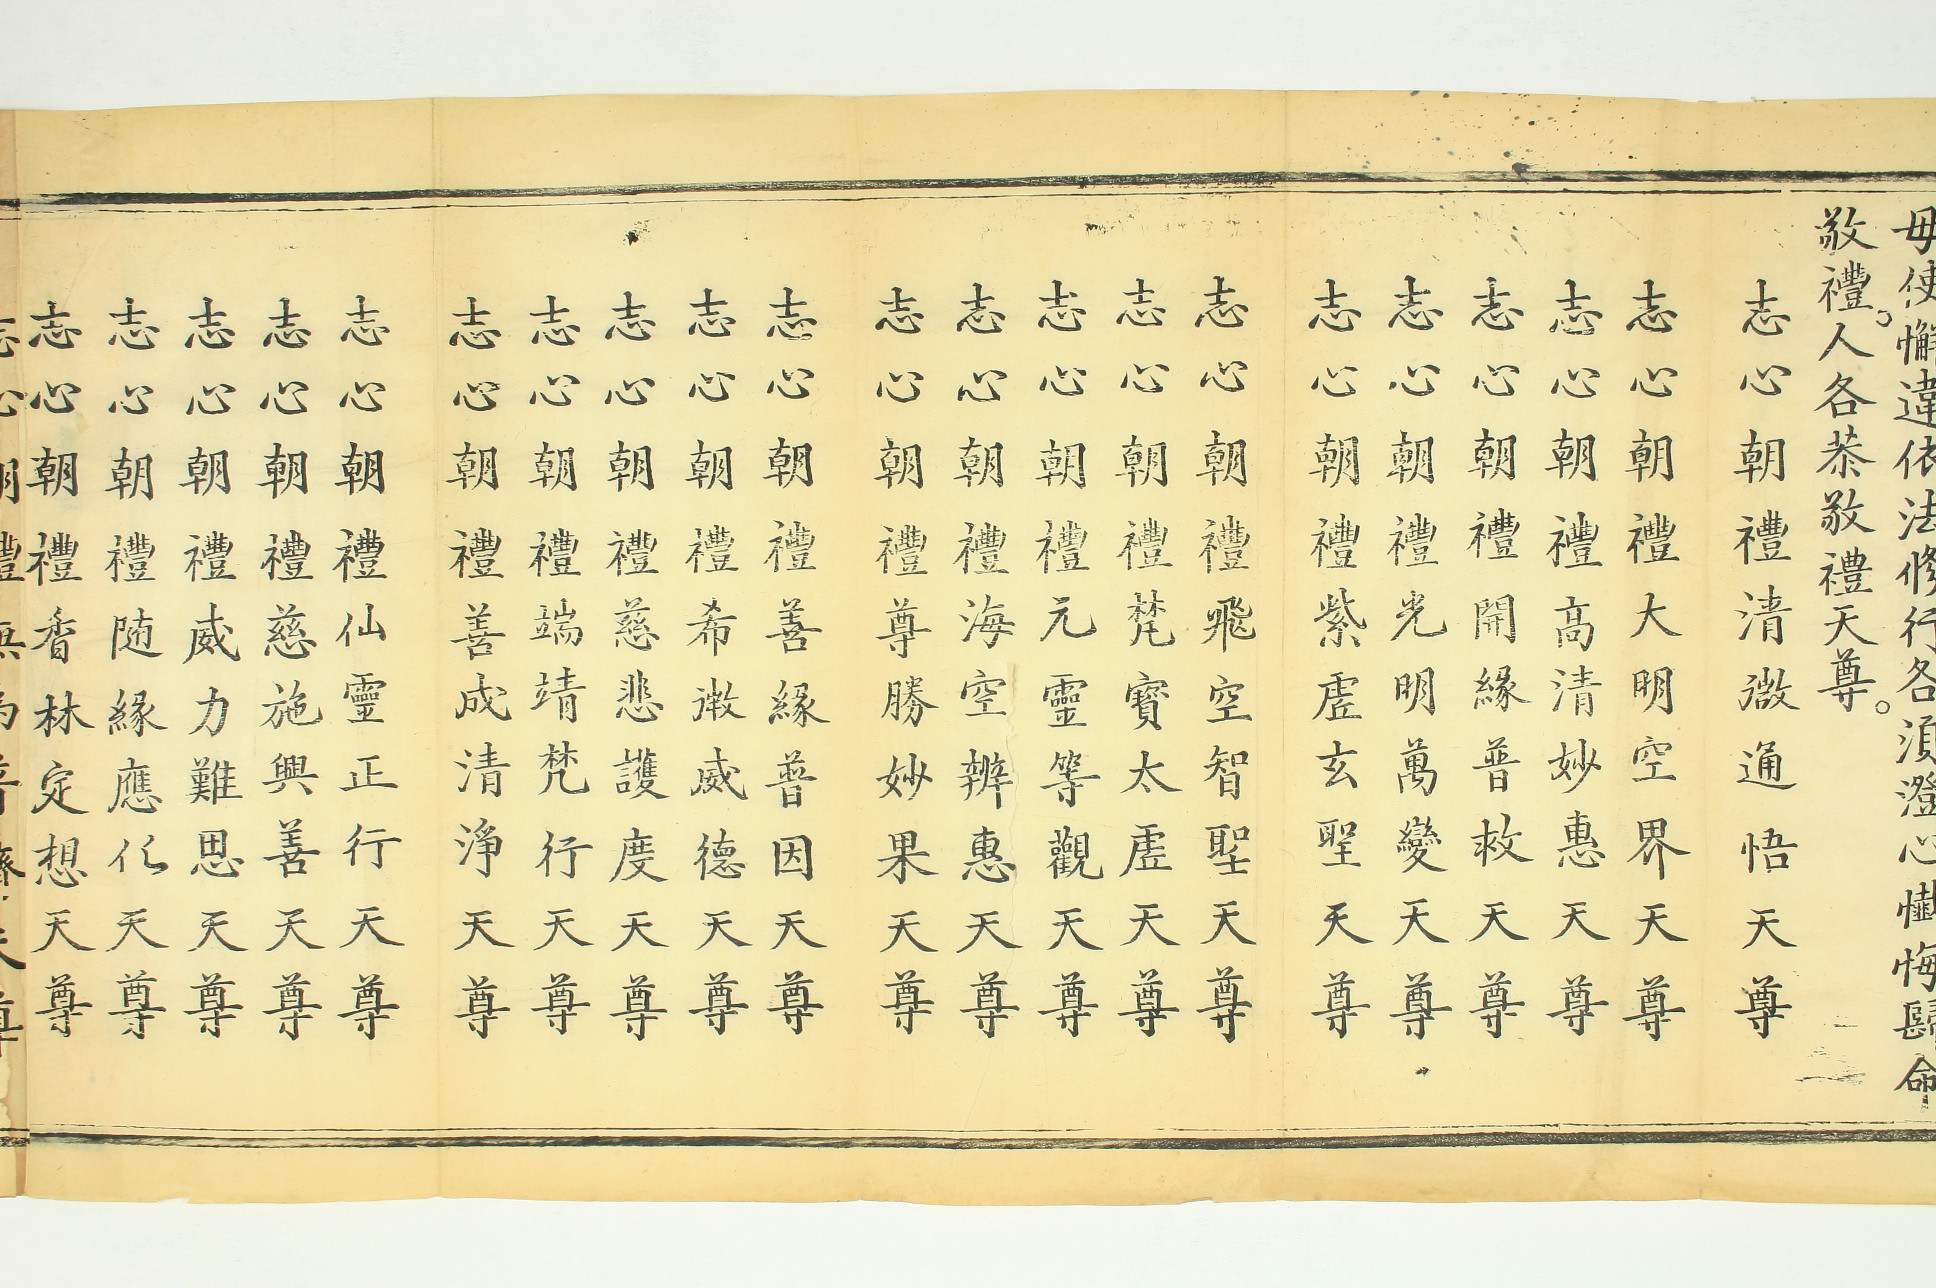 毋使懈違依法修行各湏澄心懴悔歸命
敬禮人各恭敬禮天尊。
志心朝禮清㣲通悟天尊
志心朝禮大明空界天尊
志心朝禮高清妙惠天尊
志心朝禮開緣普救天尊
志心朝禮光明萬變天尊
志心朝禮紫虗玄聖天尊
志心朝禮飛空智聖天尊
志心朝禮梵寶太虗天尊
志心朝禮元靈等觀天尊
志心朝禮海空辨惠天尊
志心朝禮尊勝妙果天尊
志心朝禮善緣普因天尊
志心朝禮希㣲威德天尊
志心朝禮慈悲護度天尊
志心朝禮端靖梵行天尊
志心朝禮善成清淨天尊
志心朝禮仙靈正行天尊
志心朝禮慈施興善天尊
志心朝禮威力難思天尊
志心朝禮随緣應化天尊
志心朝禮香林定想天尊
志心朝禮